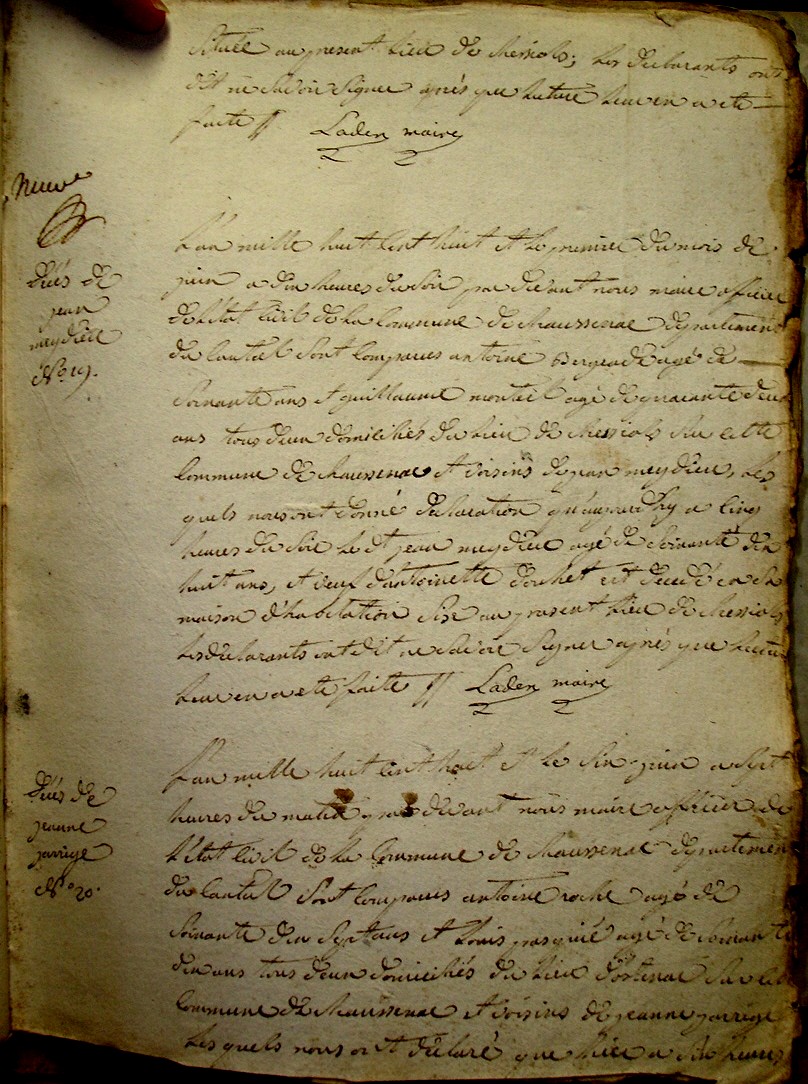 situé au present lieu de Messiols; les declarants ont
dit ne savoir signer après que lecture leur en a eté
faite // Laden maire
Neuve
Décés de
jean
meydieu
N.º 19.
L'an mille huit cent huit et le premier du mois de
juin a dix heures du soir par devant nous maire officier
de l'état civil de la Commune de Maussenac departement
du Cantal sont comparus antoine Bergeade agé de
soixante ans et guillaume monteil agé de quarante deux
ans tous deux domiciliés du lieu de Messiols sur cette
Commune de Maussenac et voisins de jean meydieu, les
quels nous ont donné declaration qu'aujourd'huy a cinq
heures du soir le dt jean meydieu agé de soixante dix
huit ans, et veuf d'antoinette douhet est decedé en sa
maison d'habitation sise au present lieu de Messiols
les declarants ont dit ne savoir signer après que lecture
leur en a eté faite // Laden maire
Décés de
jeanne
jarrige
N.º 20.
L'an mille huit cent huit et le six juin a sept
heures du matin par devant nous maire officier de
l'état civil de la Commune de Maussenac departement
du Cantal sont comparus antoine roche agé de
soixante dix sept ans et Louis pasquié agé de soixante
dix ans tous deux domiciliés du lieu d'ostenac sur cette
Commune de Maussenac et voisins de jeanne jarrige
les quels nous ont declaré que hier a six heures